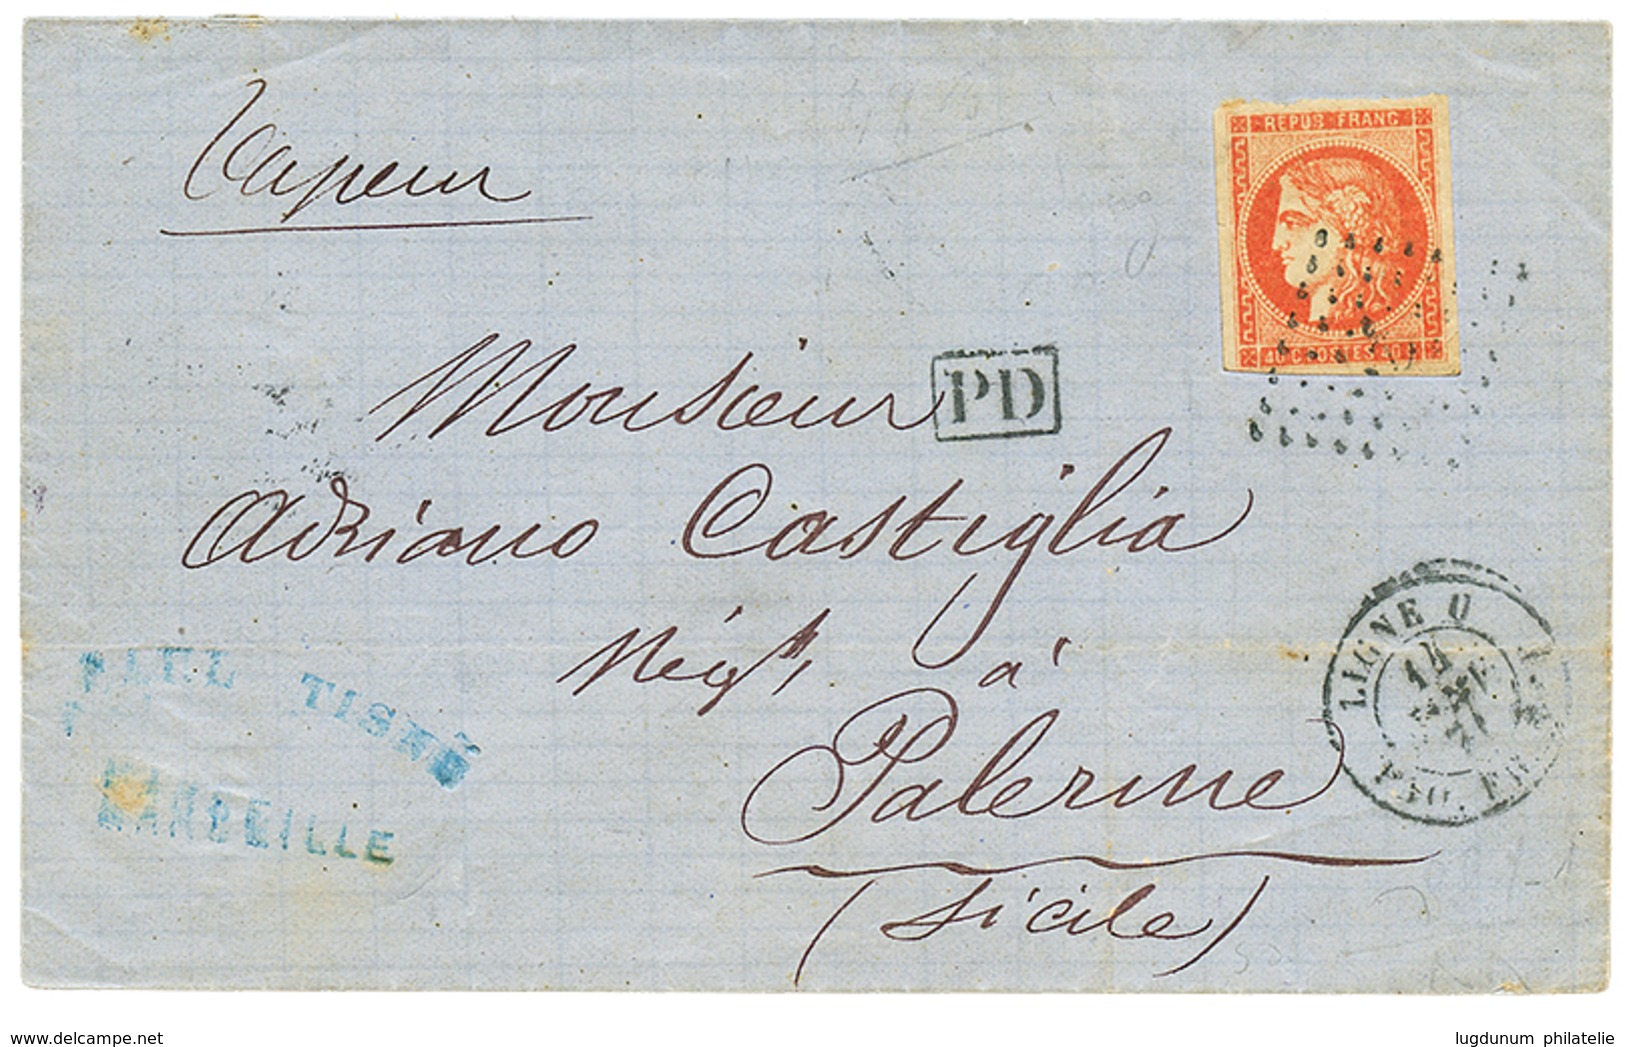 Vapeur
REPUB FRANC
40 C POSTES 40 C
Monsieur
PD
Adriano Castiglia
Négt, à
Palerme
(Sicile)
PAUL TISNÉ
MARSEILLE
LIGNE U
14
71
delcampe.net
lugdunum philatelie